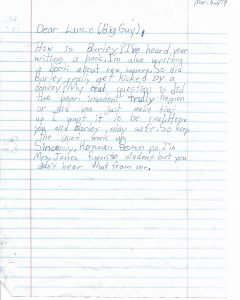 Dear Lance (Big Guy),
How is Barley (I've heard your
writing a book. I'm also writing
a book about new
So did
Barley really get kicked by a
donkey (My real question is did
the bear insident truly happen
or did you just make that
up I want it to be real Hope
you and Barley stay safe. So keep
the good work up.
Sincerly,
ps. I'm
Mrs. Jones favorite student but you
didn't hear that from me.